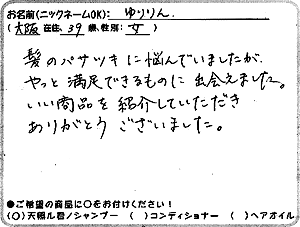 お名前(ニックネームOK): ゆりりん
(大阪 在住, 39 歳, 性別: 女 )
髪のパサツキに悩んでいましたが、
やっと満足できるものに出会えました。
いい商品を紹介していただき
ありがとうございました。
●ご希望の商品に○をお付けください!
(○)天使ル君ノシャンプー ( )コンディショナー ( )ヘアオイル